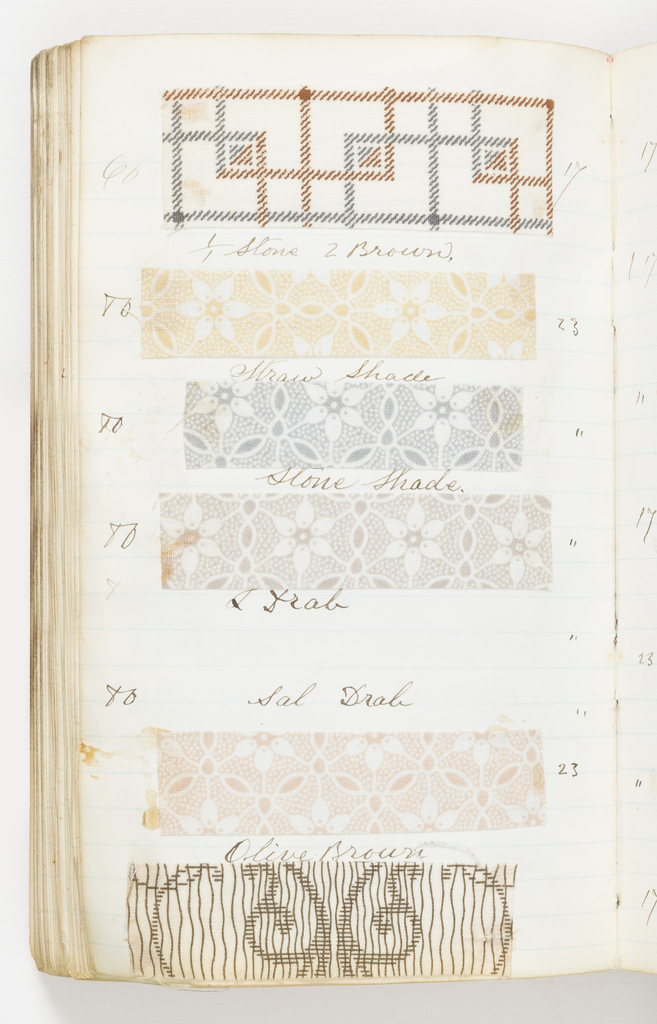 60 17
Stone 2 Brown.
80 23
Straw Shade
80 "
Stone Shade.
80 "
Drab
"
80 Sal Drab "
23
Olive Brown
17
17
"
17
23
"
17